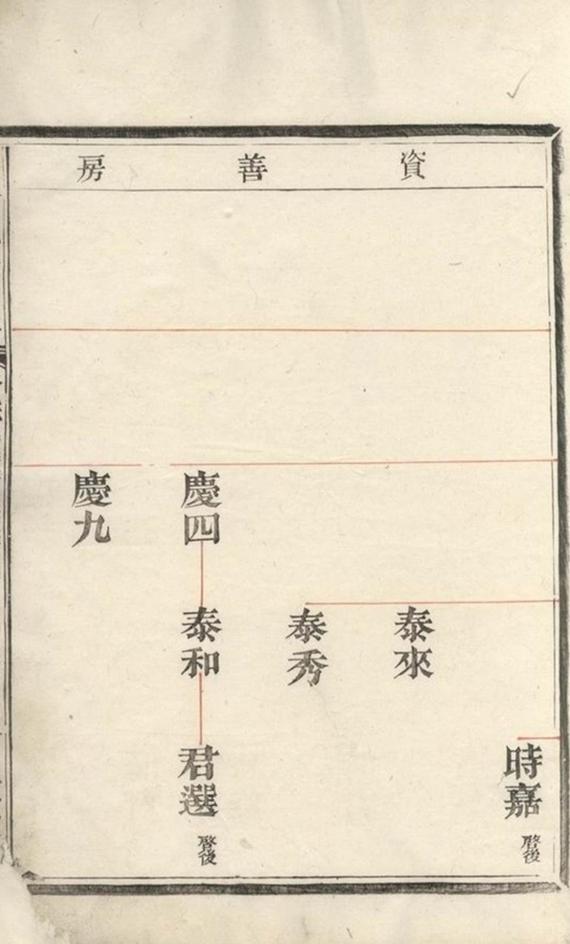 資善房
時嘉
啓後
泰來
泰秀
慶四
泰和
君選
啓後
慶九